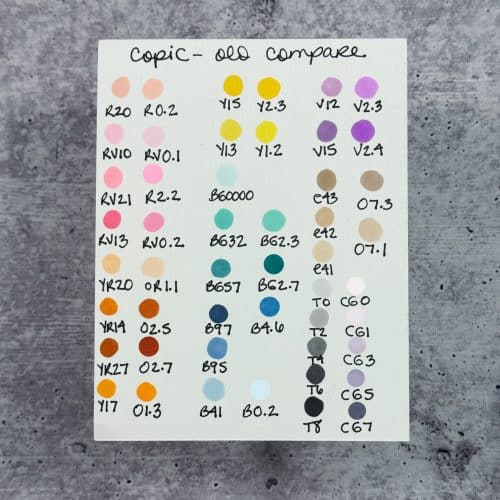 copic - old compare
R20 R0.2 Y15 Y2.3 V12 V2.3
RV10 RV0.1 Y13 Y1.2 V15 V2.4
RV21 R2.2 BG0000 e43 O7.3
RV13 RV0.2 BG32 BG2.3 e42 O7.1
YR20 OR1.1 BG57 BG2.7 e41
T0 CG0
YR14 O2.5 B97 B4.6 T2 CG1
YR27 O2.7 B95 T4 CG3
T6 CG5
Y17 O1.3 B41 B0.2 T8 CG7